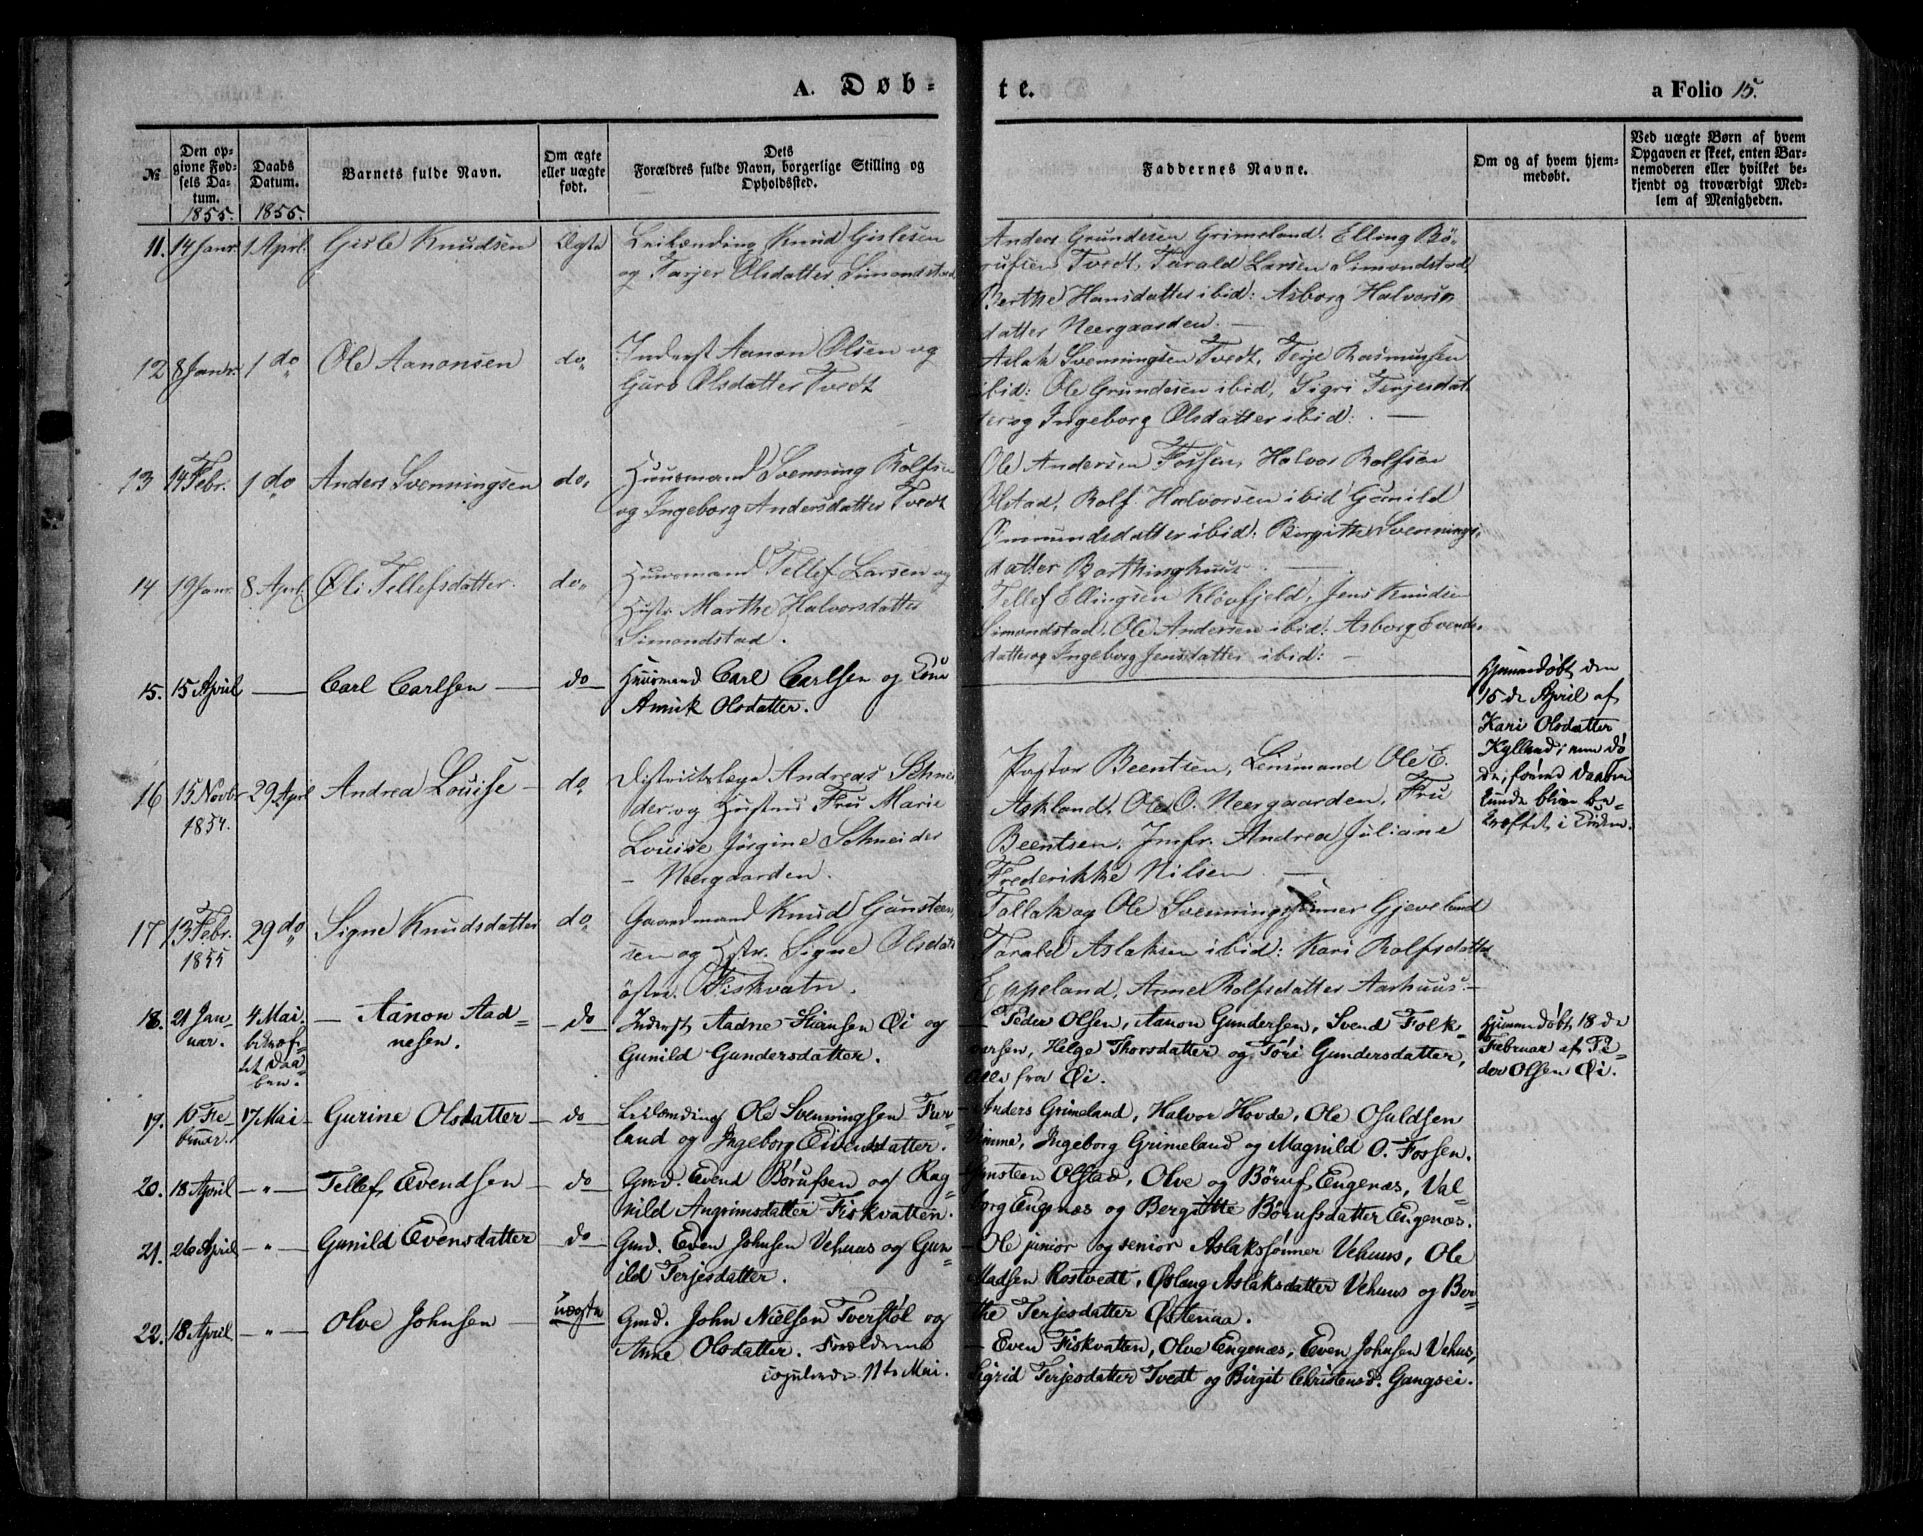 A. Døb-
te.
a Folio 15.
№
Den op-
givne Fød-
sels Da-
tum.
1855.
Daabs
Datum.
1855.
Barnets fulde Navn.
Om ægte
eller uægte
født.
Dets
Forældres fulde Navn, borgerlige Stilling og
Opholdssted.
Faddernes Navne.
Om og af hvem hjem-
medøbt.
Ved uægte Børn af hvem
Opgaven er skeet, enten Bar-
nemoderen eller hvilket be-
kjendt og troværdigt Med-
lem af Menigheden.
11. 14 Janr. 1 April. Gisle Knudsen Ægte
Leilænding Knud Gislesen
og Tarjer Olsdatter Simonstad
Anders Grundesen Grimeland. Elling Bö-
rufsen Tvedt, Tarald Larsen Simondstad
Berthe Hansdatter ibid: Asborg Halvors-
datter Neergaarden. —
12 8 Janr. 1 do Ole Aanonsen do.
Inderst Aanon Olsen og
Guro Olsdatter Tvedt
Aslak Svenningsen Tvedt, Terje Rasmussen
ibid: Ole Grundesen ibid, Sigri Terjesdat
ter og Ingeborg Olsdatter ibid: —
13 14 Febr. 1 do Anders Svenningsen do.
Huusmand Svenning Rolfsen
og Ingeborg Andersdatter Tvedt
Ole Andersen Fossen, Halvor Rolfsen
Olstad, Rolf Halvorsen ibid Gunild
Omundsdatter ibid: Birgithe Svennings-
datter
14 19 Janr. 8 April Øli Tellefsdatter. do.
Huusmand Tellef Larsen og
Hustr. Marthe Halvorsdatter
Simondstad.
Tellef Ellingsen Kløvfjeld, Jens Knudsen
Simondstad, Ole Andersen ibid: Asborg Evends-
datter og Ingeborg Jensdatter ibid: —
15. 15 April — Carl Carlsen — do
Huusmand Carl Carlsen og
Olsdatter.
Hjemmedøbt den
15de April af
Kari Olsdatter
Kylland; men dö
de, förend Daaben
kunde blive be-
kræftet i Kirken.
16 15 Novbr 1854. 29 April Andrea Louise — do.
Districtslæge Andreas Schnei
der og Hustru Fru Marie
Louise Jørgine Schneider
— Neergaarden.
Pastor Beentsen, Lensmand Ole E.
Askland, Ole O. Neergaarden, Fru
Beentsen, Jmfr. Andrea Juliane
Frederikke Nilsen —
17 13 Febr. 1855 29 do Signe Knudsdatter do.
Gaardmand Knud Gunsteen
sen og Hstr. Signe Olsdatt
östre Fiskvatn.
Tallak og Ole Svenningssönner Gjeveland
Tarald Aslaksen ibid: Kari Rolfsdatter
Eppeland, Anne Rolfsdatter Aarhuus. —
18. 21 Jan-
uar. 4 Mai. bekræf-
tet Daa-
ben. — Aanon Aad-
nesen. — do
Inderst Aadne Stiansen Øi og
Gunild Gundersdatter.
— Peder Olsen, Aanon Gundersen, Svend Folk-
varsen, Helge Thorsdatter og Töri Gundersdatter,
alle fra Øi.
Hjemmedöbt 18de
Februar af Pe-
der Olsen Øi.
19. 16 Fe-
bruar. 17 Mai — Gurine Olsdatter — do
Leilænding Ole Svenningsen
land og Ingeborg Eivendsdatter.
— Anders Grimeland, Halvor Hovde, Ole Osuldsen
Ingeborg Grimeland og Magnild O. Fossen.
20. 18 April — " — Tellef Evendsen — do
Gmd. Evend Börufsen og Rag-
nild Angrimsdatter Fiskvatten.
Gunsteen Olstad, Olve og Böruf Engenæs, Val-
borg Engenæs og Bergitte Börufsdatter Engenæs.
21. 26 April — " — Gunild Evensdatter do
Gmd. Even Johnsen Vehuus og Gun-
ild Terjesdatter.
— Ole junior og senior Aslakssönner Vehuus, Ole
Madsen Rostvedt, Øslaug Aslaksdatter Vehuus og Ber-
the Terjesdatter Østeraa.
22. 18 April — " — Olve Johnsen — uægte
Gmd. John Nielsen Tverstöl og
Anne Olsdatter. Forældrene
copulerede 11te Mai.
— Even Fiskvatten, Olve Engenæs, Even Johnsen Vehus,
Sigrid Terjesdatter Tvedt og Birgit Christensd. Gangsei.